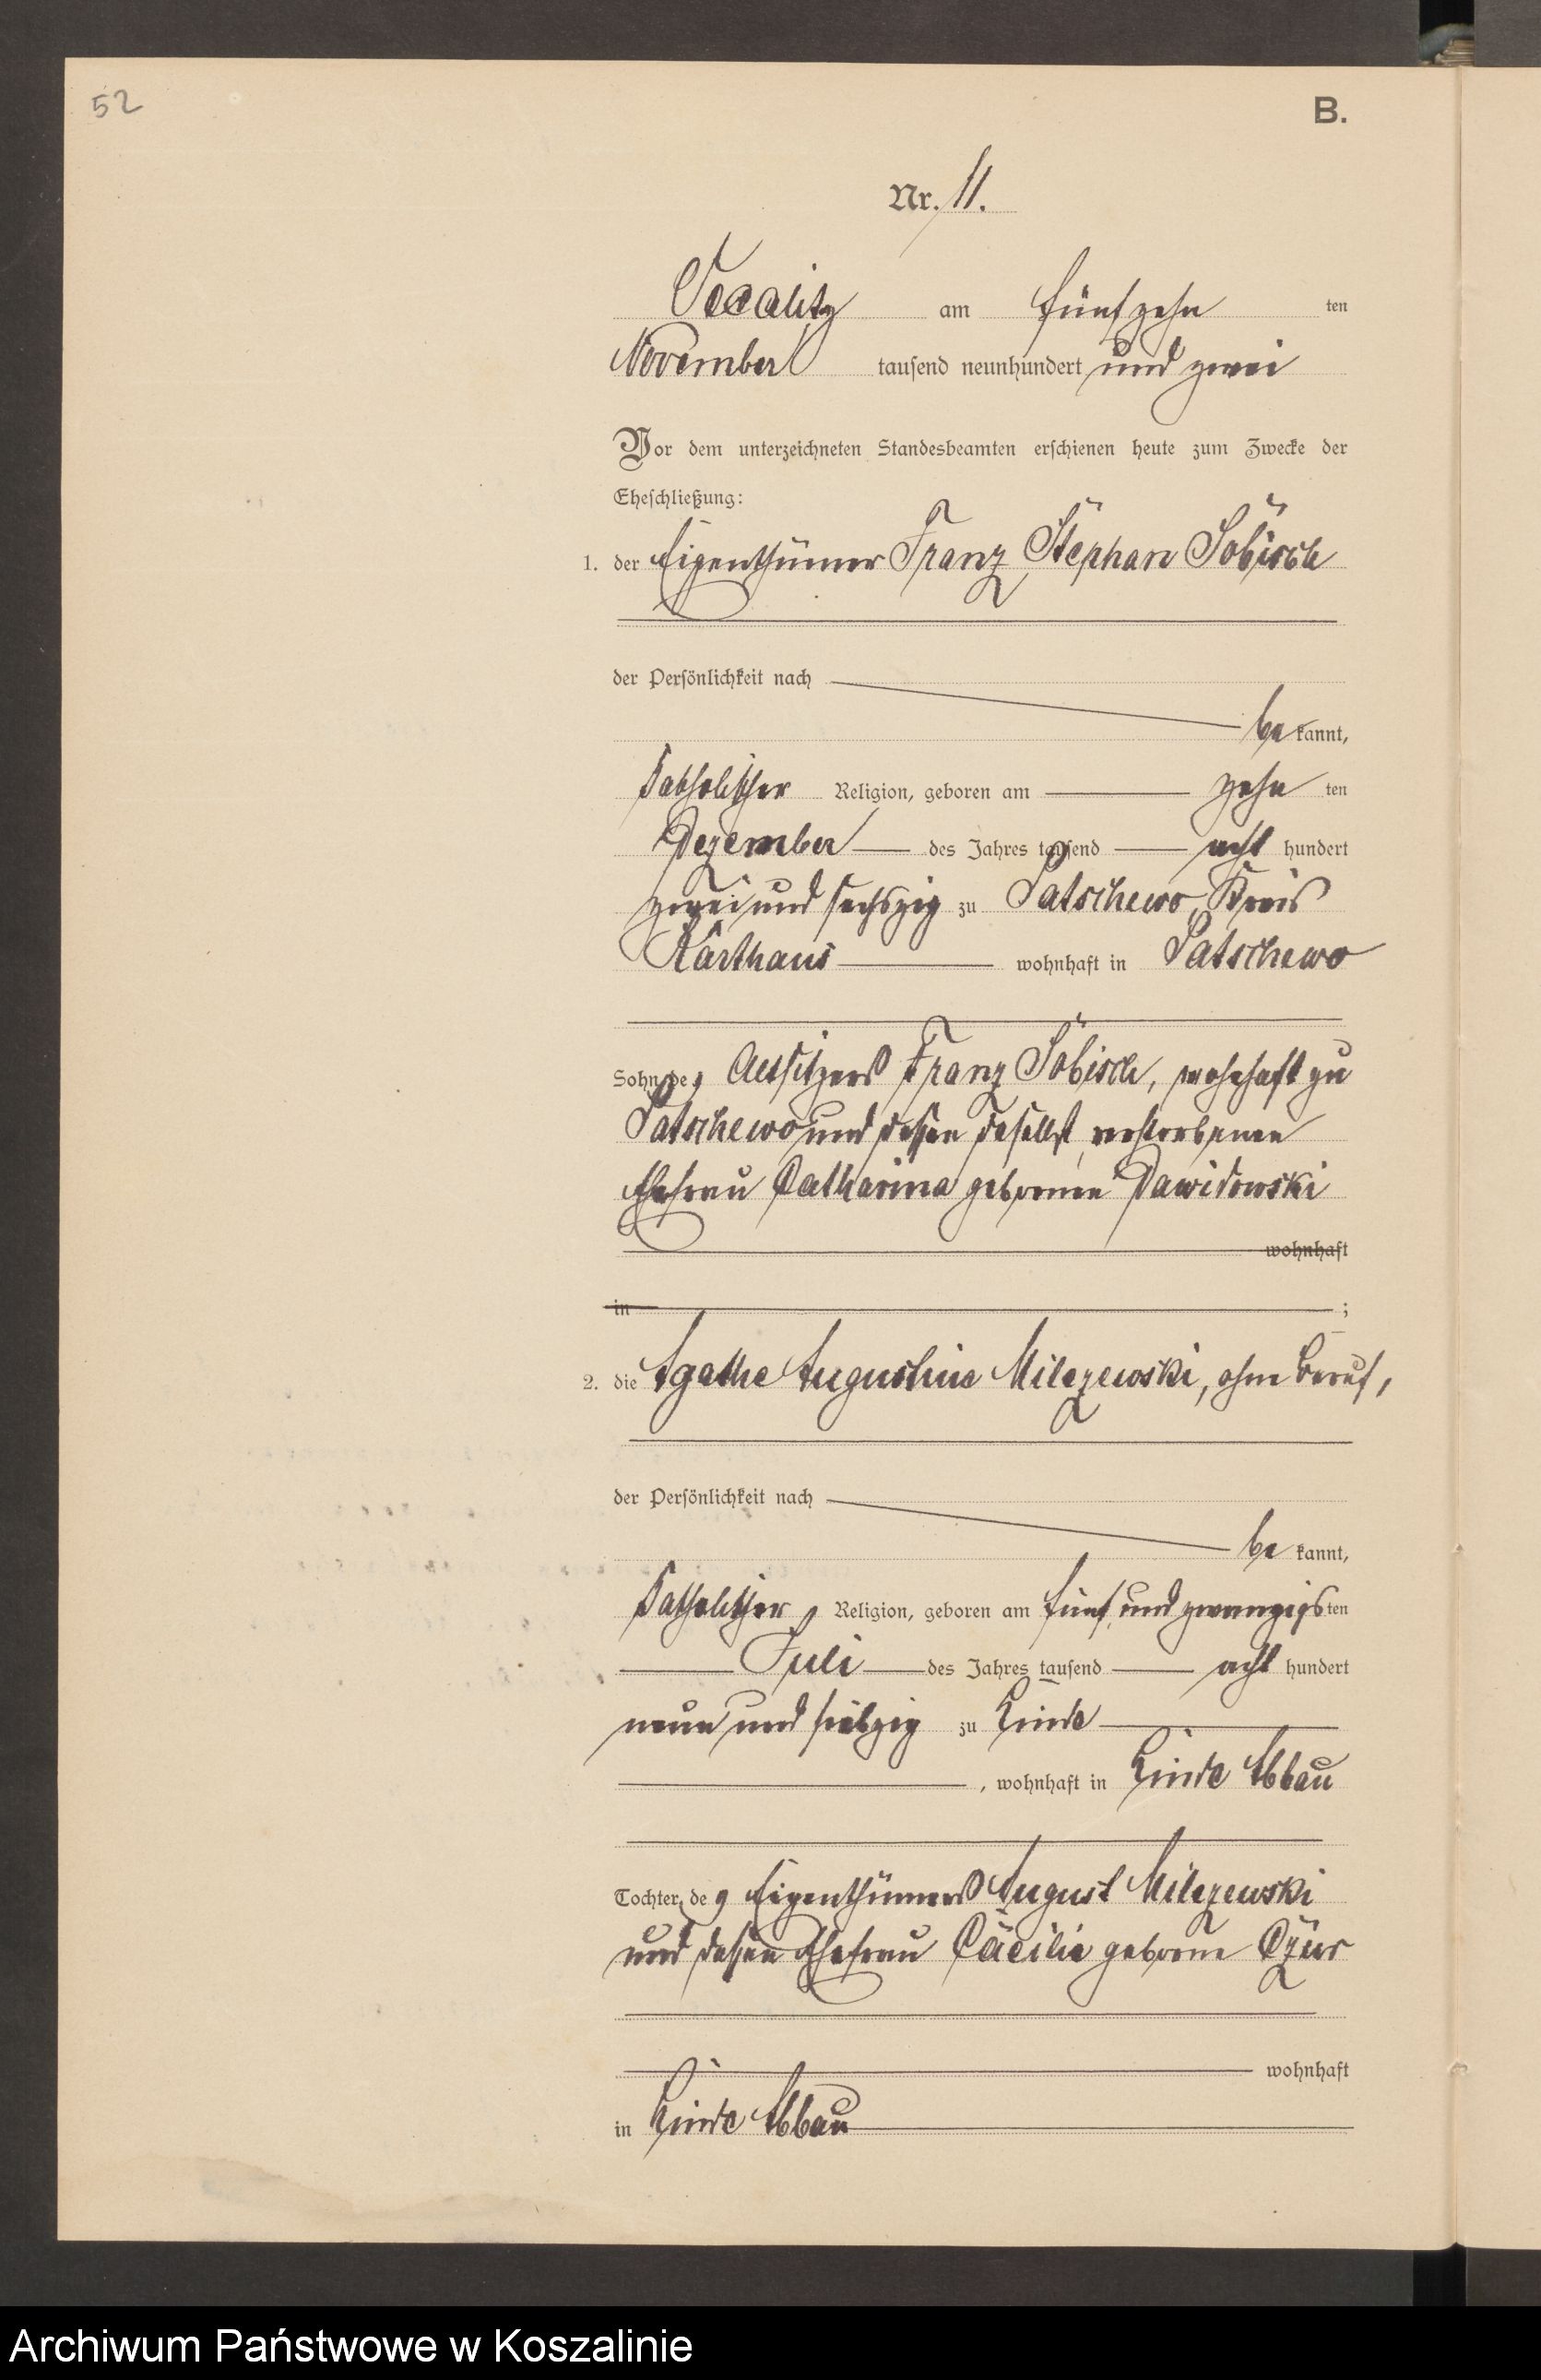 52
B.
Nr. 11.
Vixow am fünfzehn ten
November tausend neunhundert und zwei
Vor dem unterzeichneten Standesbeamten erschienen heute zum Zwecke der
Eheschließung:
1. der Eigenthümer Franz Stephan Sobisch
der Persönlichkeit nach
be kannt,
katholischer Religion, geboren am zehn ten
Dezember des Jahres tausend acht hundert
zwei und sechszig zu Satschewo, Kreis
Karthaus wohnhaft in Satschewo
Sohn des Altsitzers Franz Sobisch, wohnhaft zu
Satschewo und dessen daselbst verstorbenen
Ehefrau Catharina geborenen Dawidowski
wohnhaft
in ;
2. die Agathe Augustine Milczewski, ohne Beruf,
der Persönlichkeit nach
be kannt,
katholischer Religion, geboren am fünf und zwanzigsten
Juli des Jahres tausend acht hundert
neun und siebzig zu Linde
, wohnhaft in Linde Abbau
Tochter des Eigenthümers August Milczewski
und dessen Ehefrau Cäcilie geborene
wohnhaft
in Linde Abbau
Archiwum Państwowe w Koszalinie